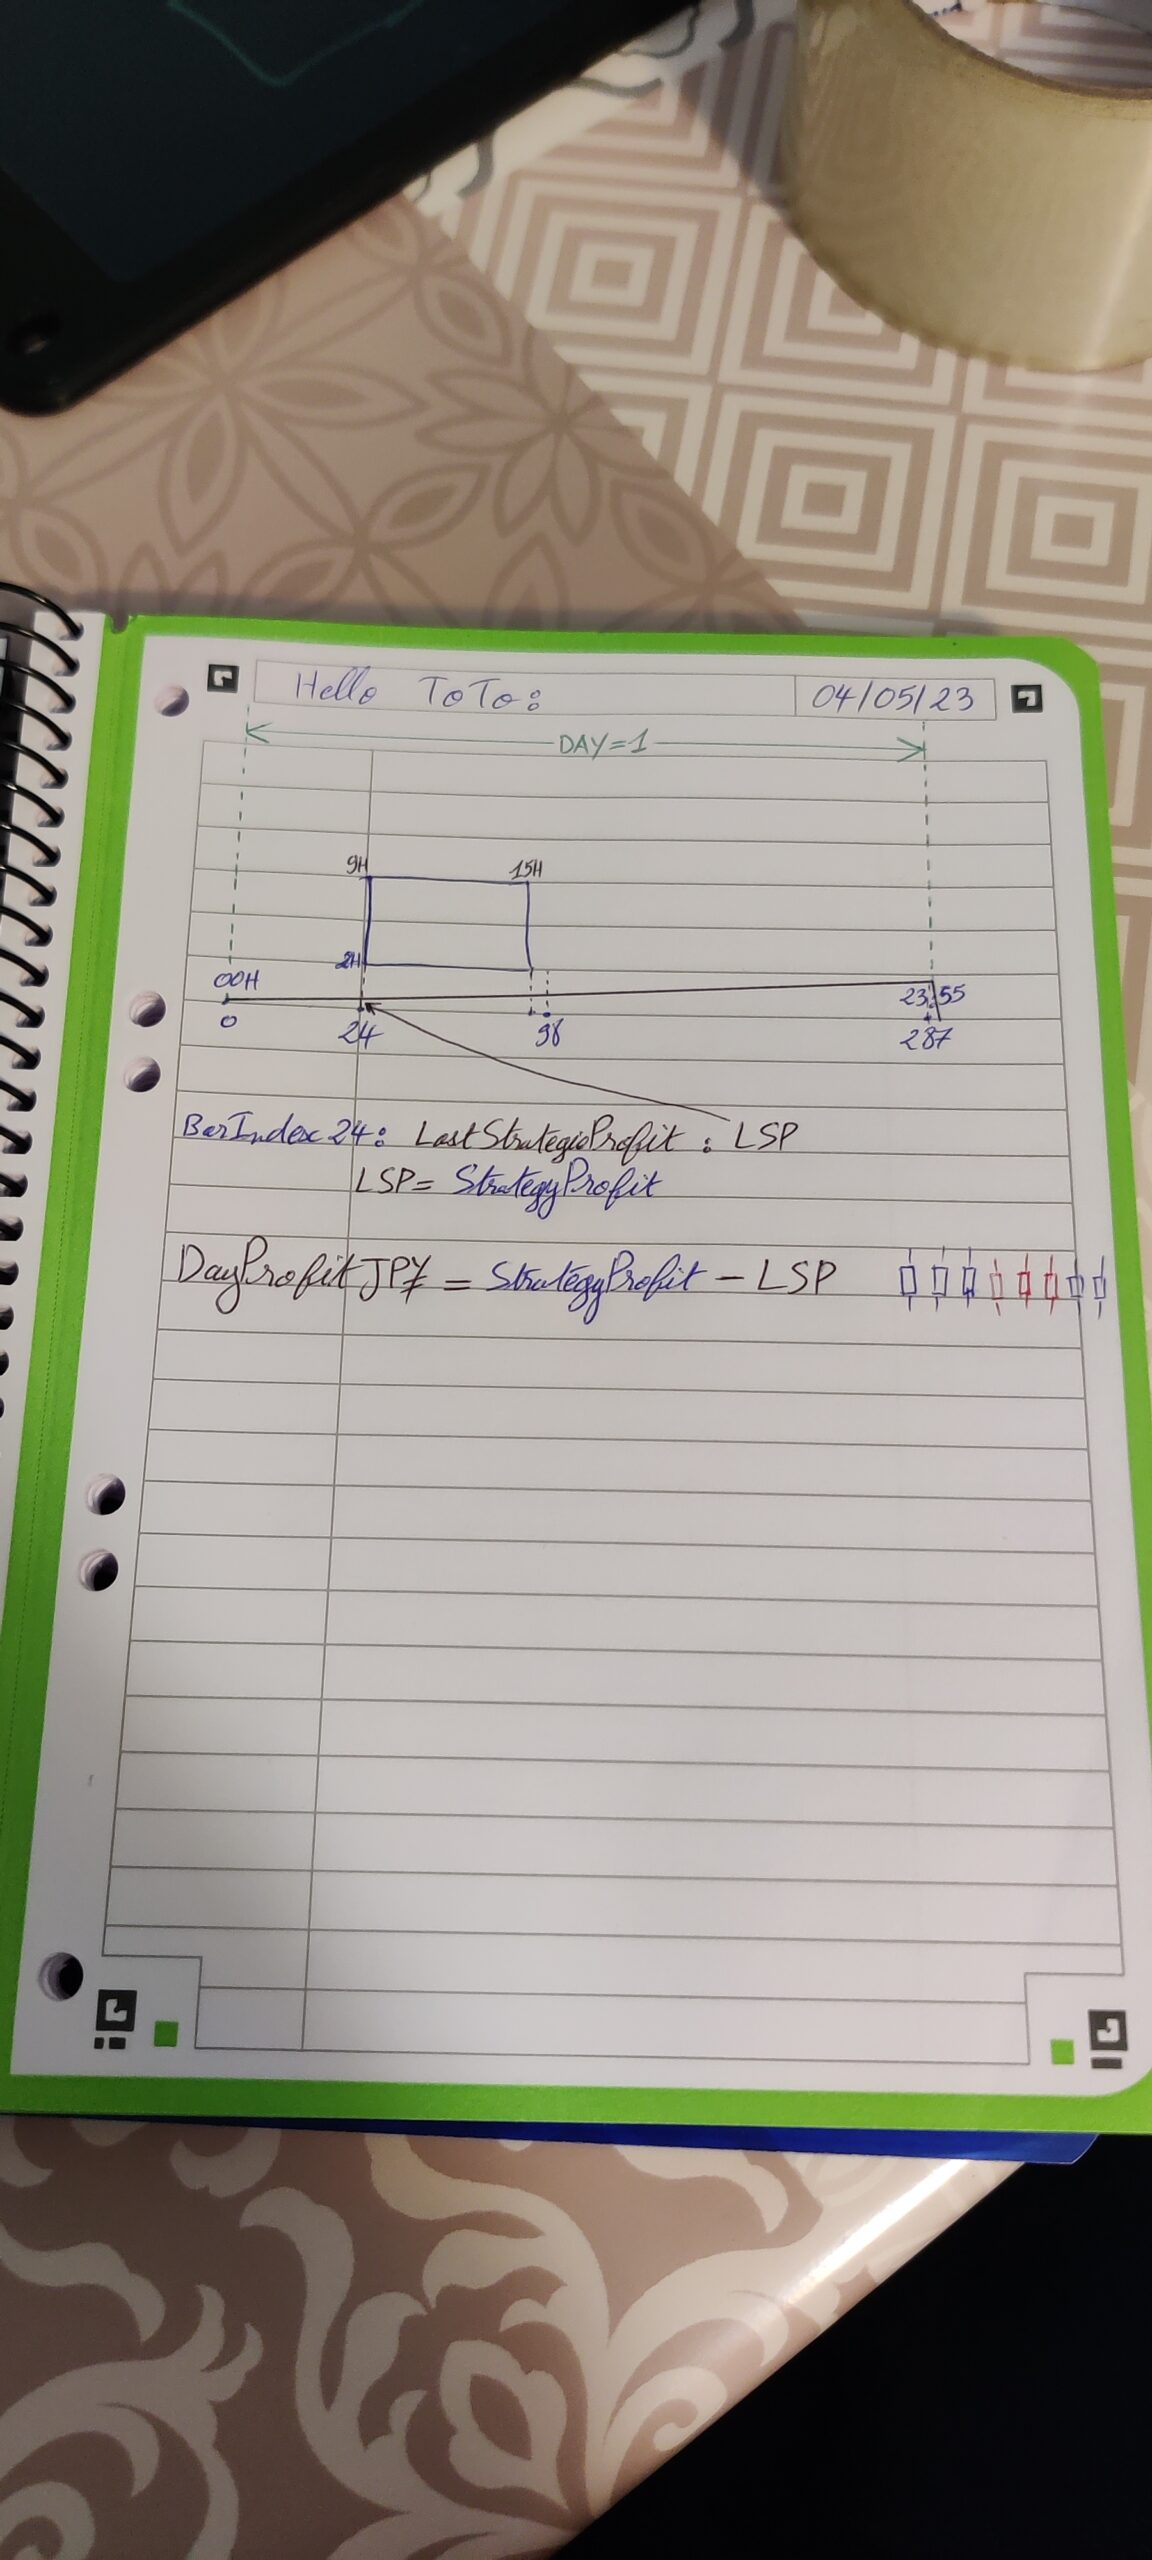 Hello ToTo:
04/05/23
DAY=1
9H 15H
2H
00H
23:55
0 24 98 287
BarIndex 24: LastStrategieProfit : LSP
LSP= StrategyProfit
DayProfit JPY = StrategyProfit - LSP